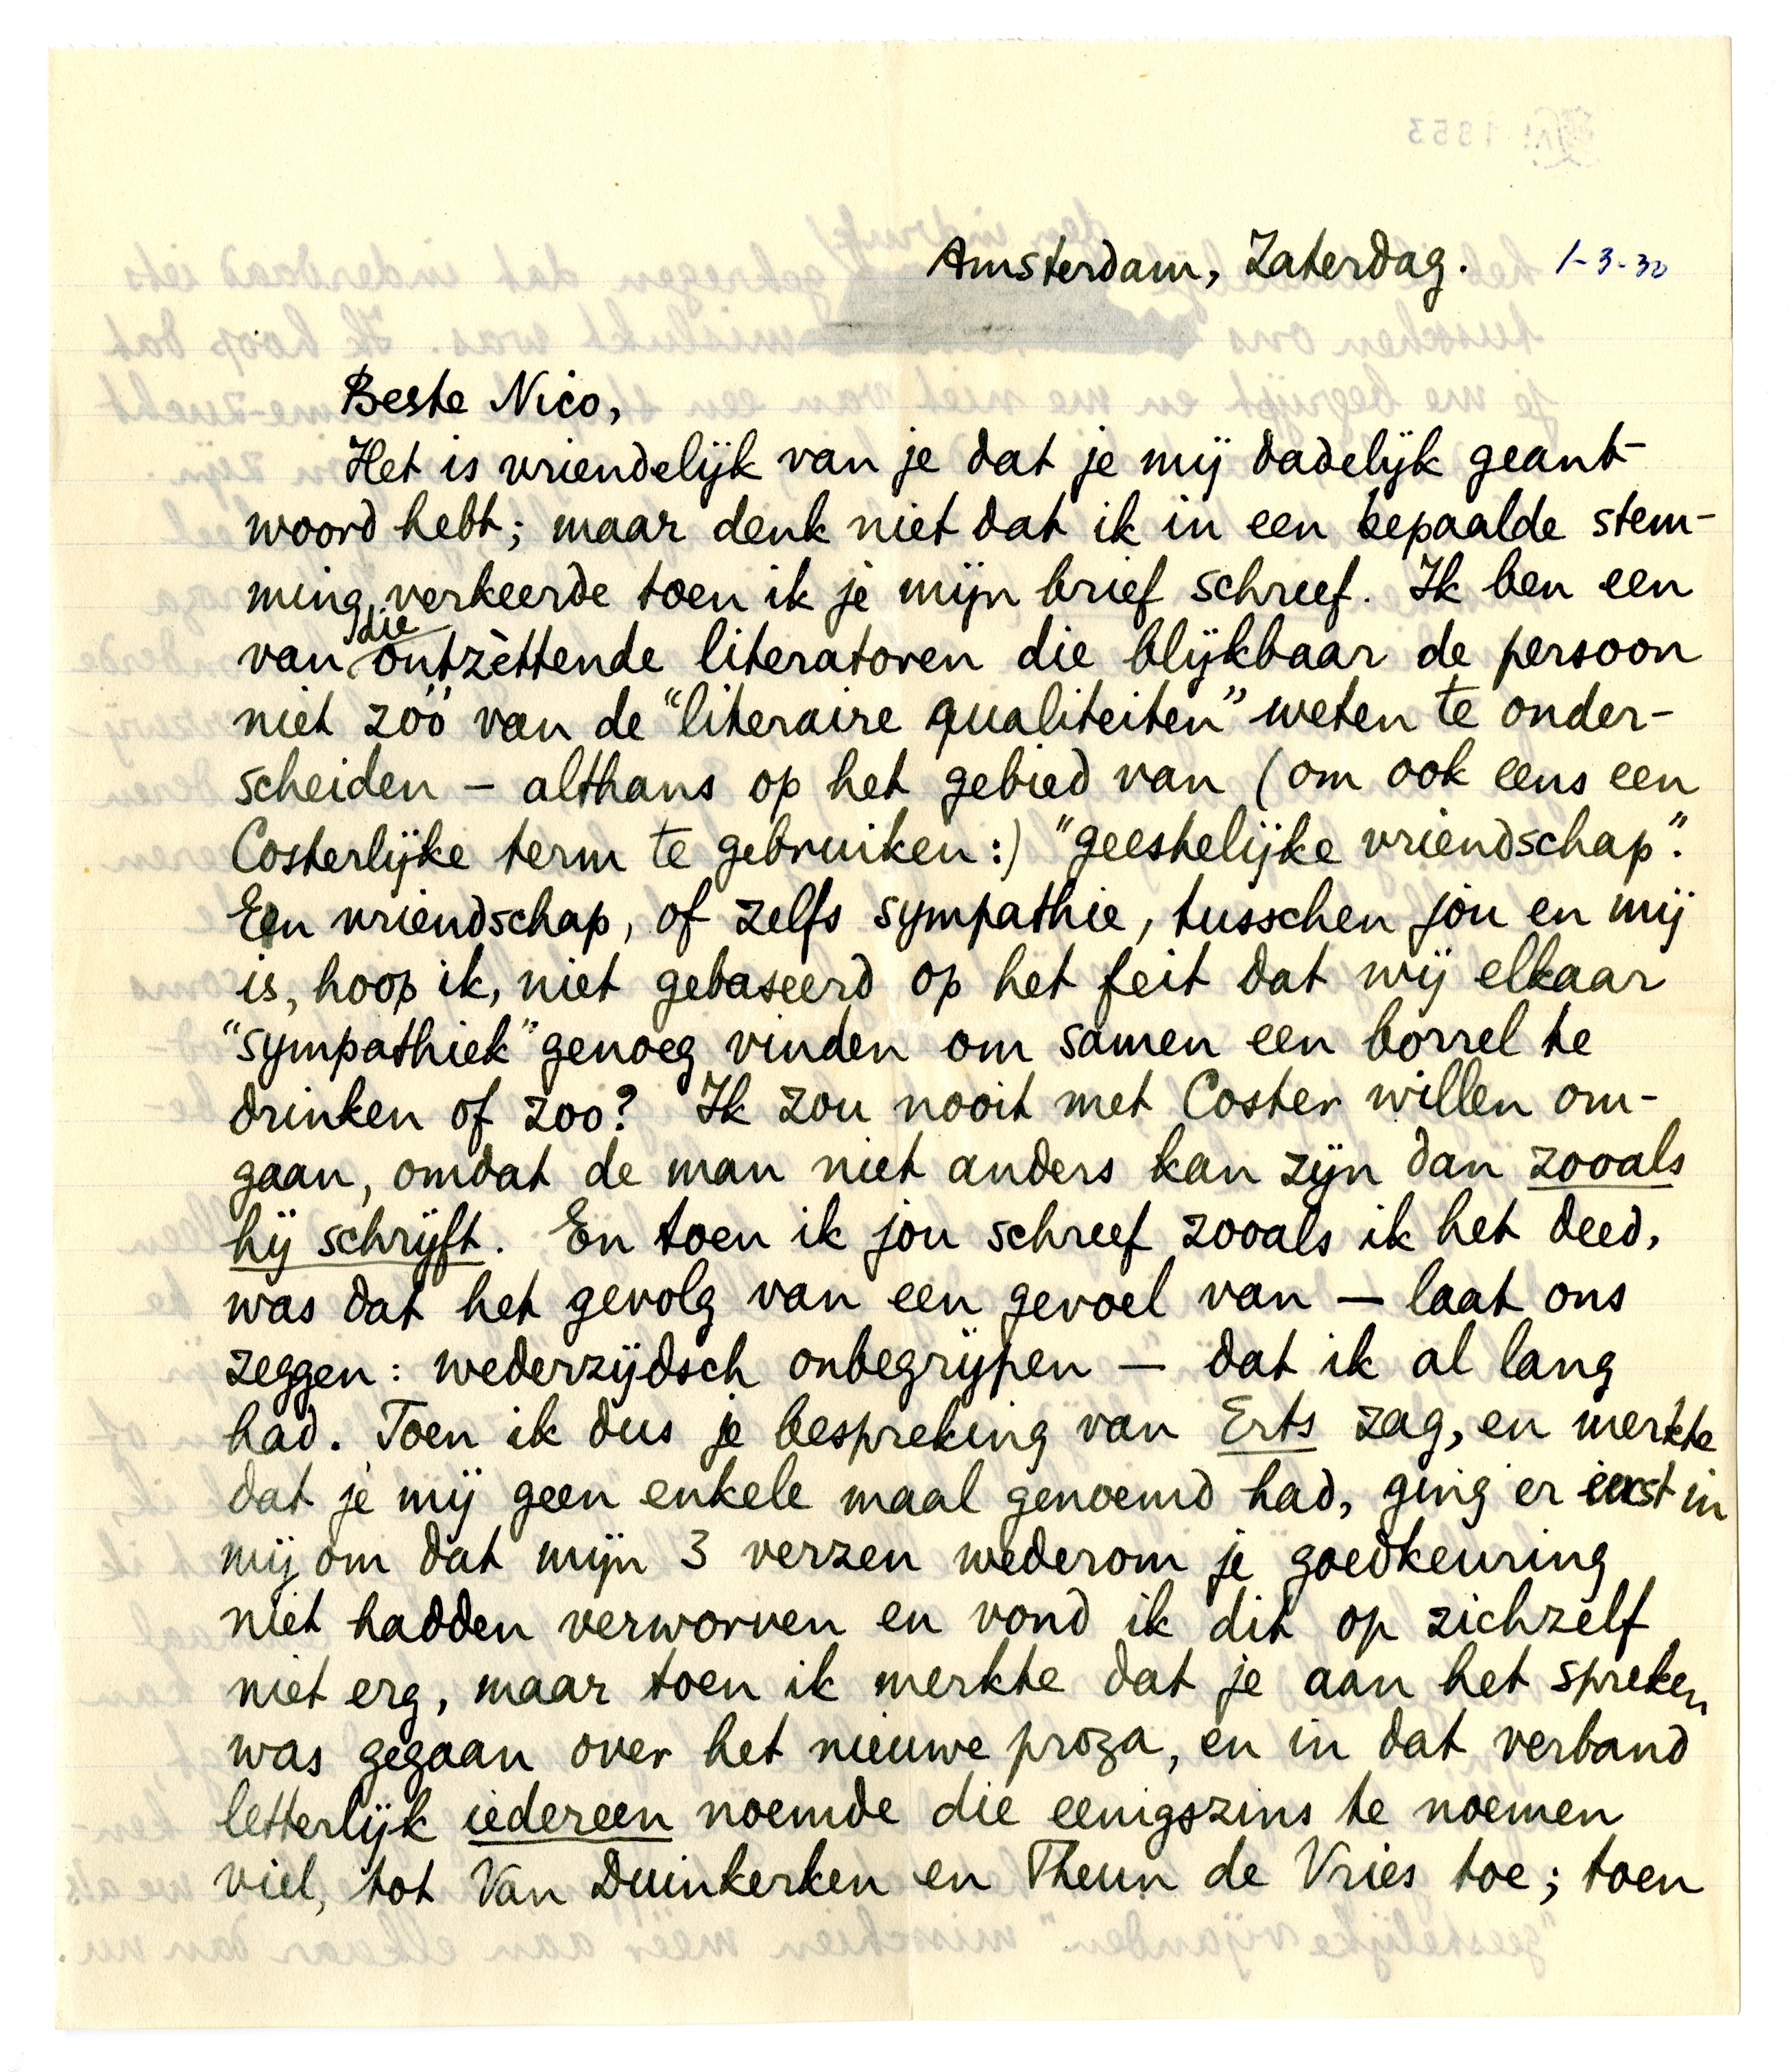 Amsterdam, Zaterdag. 1-3-30
Beste Nico,
Het is vriendelijk van je dat je mij dadelijk geant-
woord hebt; maar denk niet dat ik in een bepaalde stem-
ming verkeerde toen ik je mijn brief schreef. Ik ben een
van die ontzèttende literatoren die blijkbaar de persoon
niet zóó van de "literaire qualiteiten" weten te onder-
scheiden – althans op het gebied van (om ook eens een
Costerlijke term te gebruiken:) "geestelijke vriendschap".
Een vriendschap, of zelfs sympathie, tusschen jou en mij
is, hoop ik, niet gebaseerd op het feit dat wij elkaar
"sympathiek" genoeg vinden om samen een borrel te
drinken of zoo? Ik zou nooit met Coster willen om-
gaan, omdat de man niet anders kan zijn dan zooals
hij schrijft. En toen ik jou schreef zooals ik het deed,
was dat het gevolg van een gevoel van — laat ons
zeggen: wederzijdsch onbegrijpen — dat ik al lang
had. Toen ik dus je bespreking van Erts zag, en merkte
dat je mij geen enkele maal genoemd had, ging er eerst in
mij om dat mijn 3 verzen wederom je goedkeuring
niet hadden verworven en vond ik dit op zichzelf
niet erg, maar toen ik merkte dat je aan het spreken
was gegaan over het nieuwe proza, en in dat verband
letterlijk iedereen noemde die eenigszins te noemen
viel, tot Van Duinkerken en Theun de Vries toe; toen